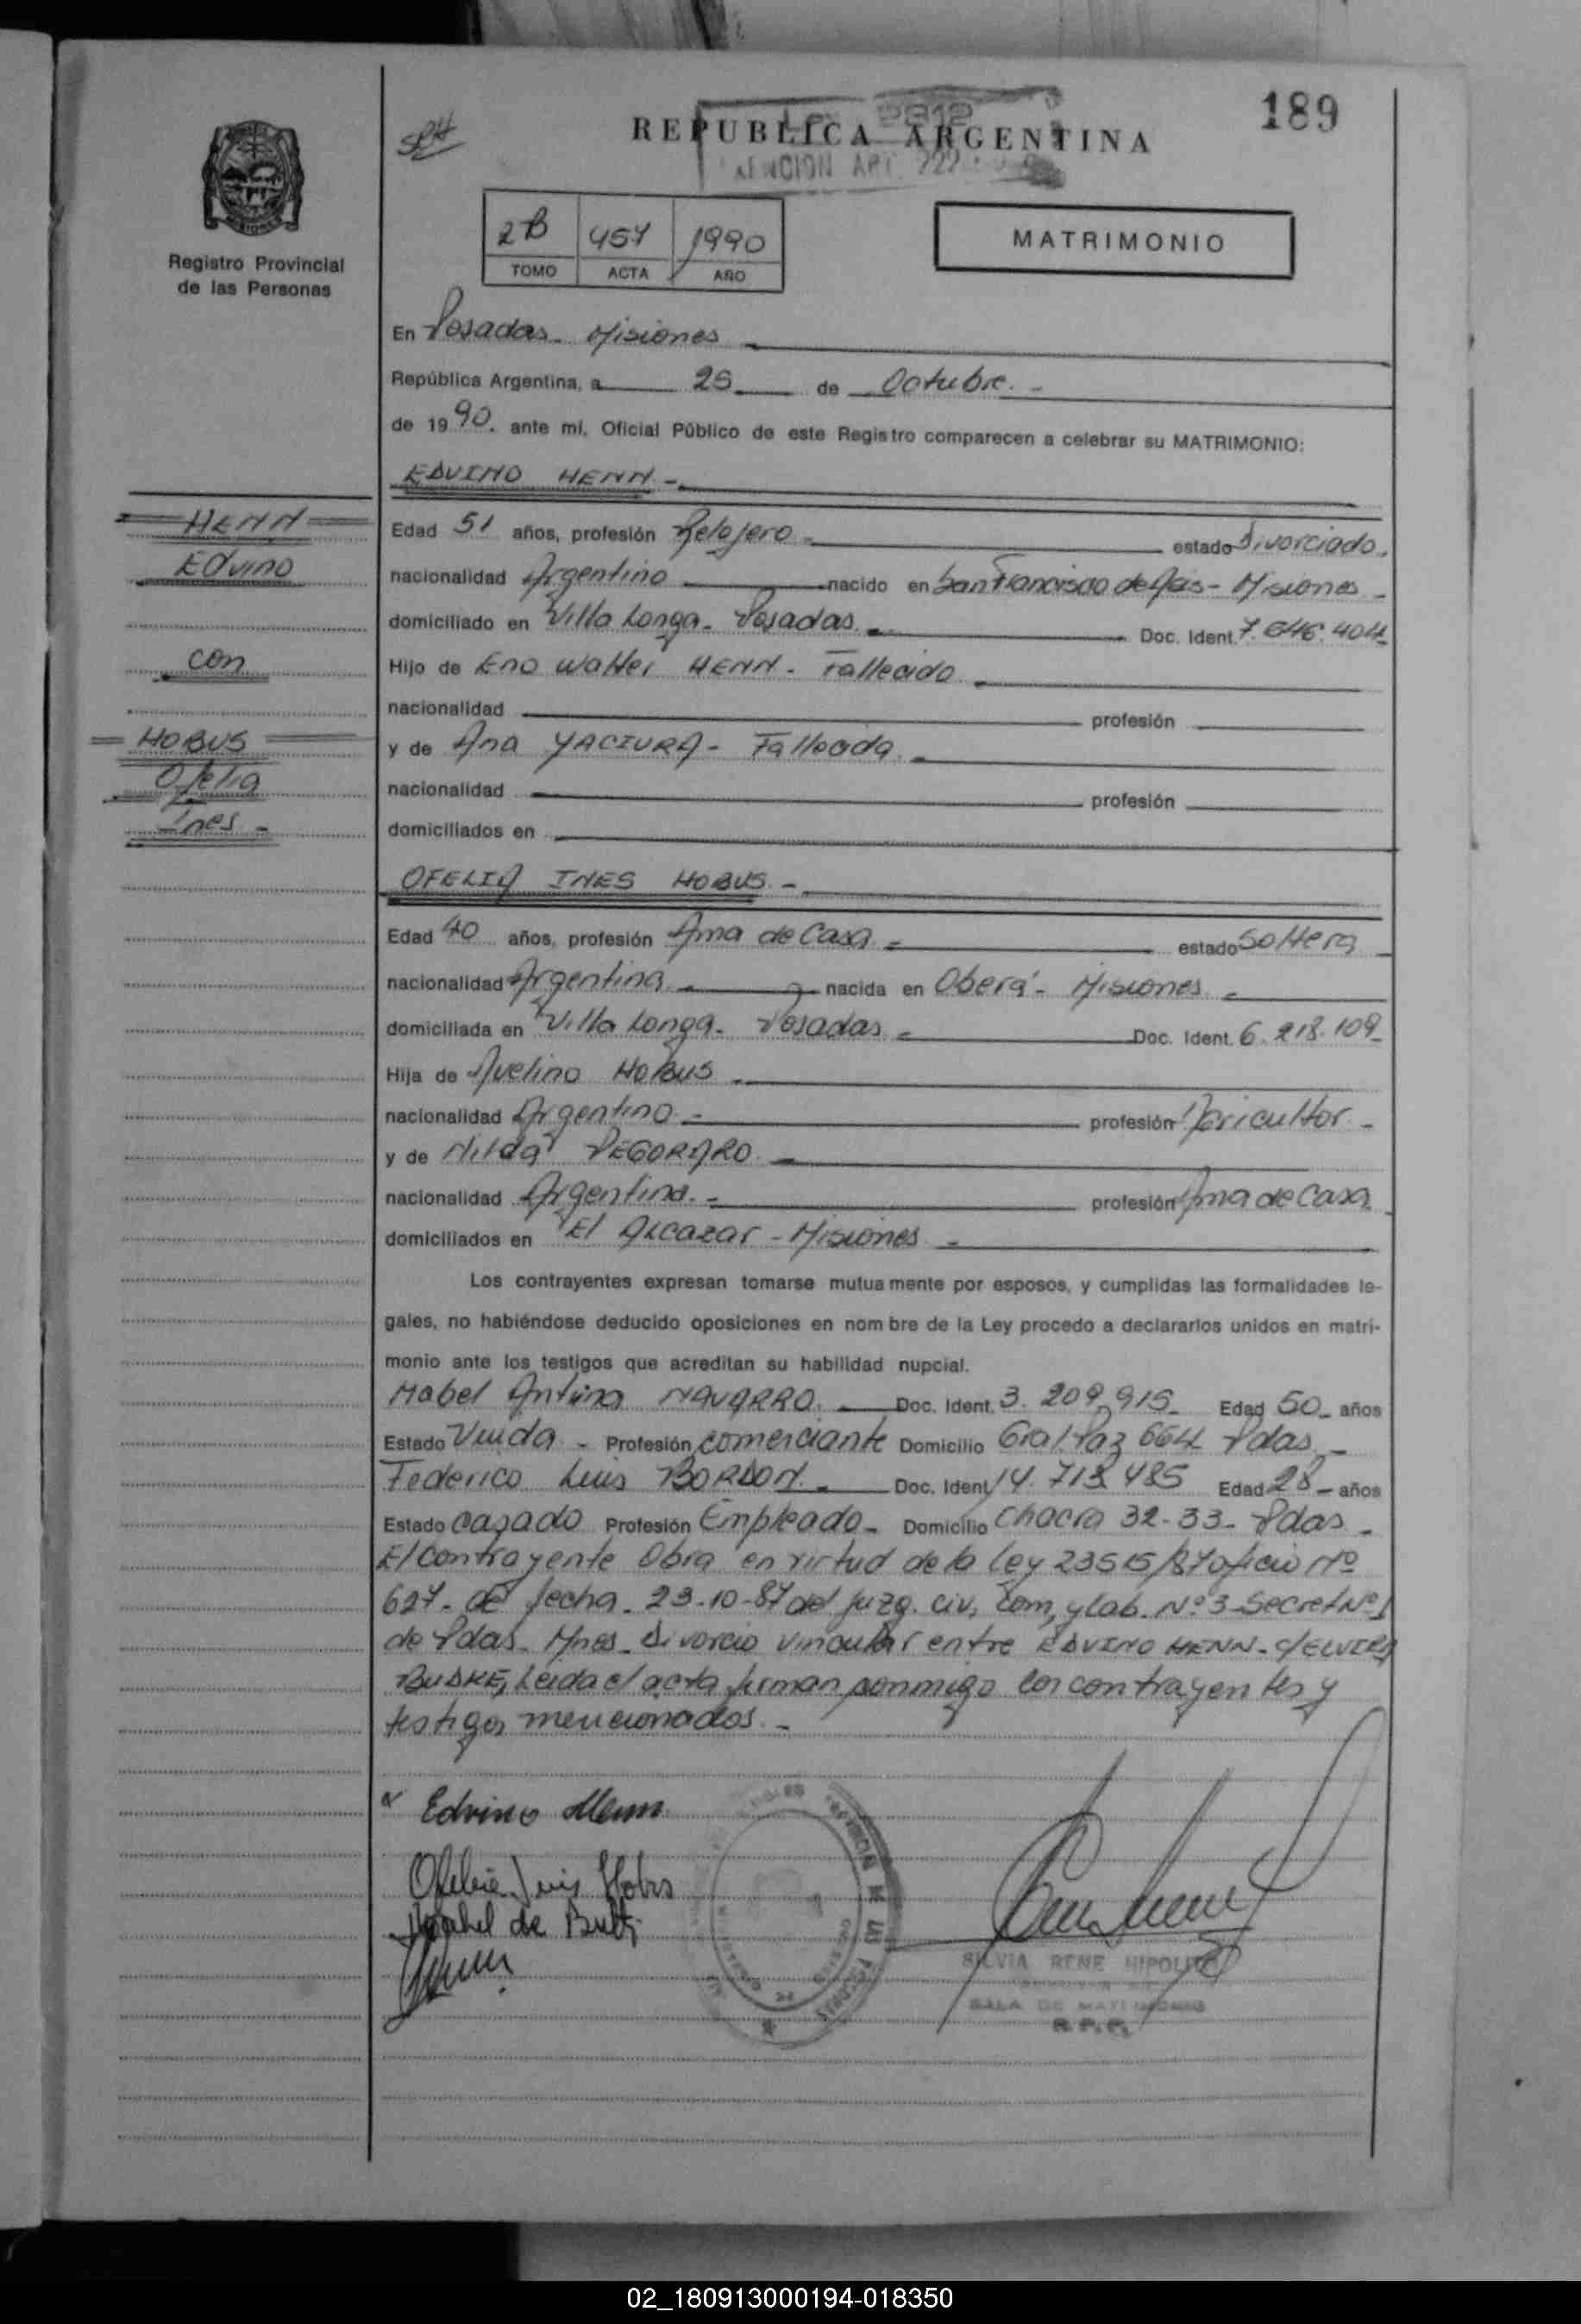 189
REPUBLICA ARGENTINA
2B 457 1990
TOMO ACTA AÑO
MATRIMONIO
Registro Provincial
de las Personas
En Posadas - Misiones
República Argentina, a 25 de Octubre. -
de 1990. ante mí, Oficial Público de este Registro comparecen a celebrar su MATRIMONIO:
EDVINO HENN. -
HENN
Edvino
con
HOBUS
Ofelia
Ines -
Edad 51 años, profesión Relojero - estado Divorciado.
nacionalidad Argentino nacido en San Francisco de Asis - Misiones -
domiciliado en Villa Longa - Posadas. Doc. Ident. 7.646.404
Hijo de Eno Walter HENN - Fallecido
nacionalidad profesión
y de Ana YACIURA - Fallecida.
nacionalidad profesión
domiciliados en
OFELIA INES HOBUS. -
Edad 40 años, profesión Ama de Casa. - estado Soltera
nacionalidad Argentina. nacida en Oberá - Misiones -
domiciliada en Villa Longa - Posadas - Doc. Ident. 6.213.109
Hija de Avelino HOBUS
nacionalidad Argentino - profesión Agricultor. -
y de Nilda PEGORARO
nacionalidad Argentina. - profesión Ama de Casa
domiciliados en El Alcazar - Misiones -
Los contrayentes expresan tomarse mutuamente por esposos, y cumplidas las formalidades le-
gales, no habiéndose deducido oposiciones en nombre de la Ley procedo a declararlos unidos en matri-
monio ante los testigos que acreditan su habilidad nupcial.
Mabel NAVARRO. Doc. Ident. 3.209.915 Edad 50 años
Estado Viuda - Profesión comerciante Domicilio Gral. Paz 664 Pdas -
Federico Luis BORDON. Doc. Ident. 14.713.485 Edad 28 años
Estado casado Profesión Empleado - Domicilio Chacra 32-33 - Pdas -
El contrayente Obra en virtud de la Ley 23515/87 oficio Nº
627 - de fecha - 23-10-87 del Juzg. Civ, Com, y Lab. Nº 3 Secret Nº 1
de Pdas - Mnes - Divorcio vincular entre EDVINO HENN - c/ELVIRA
BUDKE, Leida el acta firman conmigo los contrayentes y
testigos mencionados. -
Edvino Henn
Ofelia Ines Hobus
SILVIA RENE HIPOLITO
SALA DE MATRIMONIO
R.P.P.
02_180913000194-018350